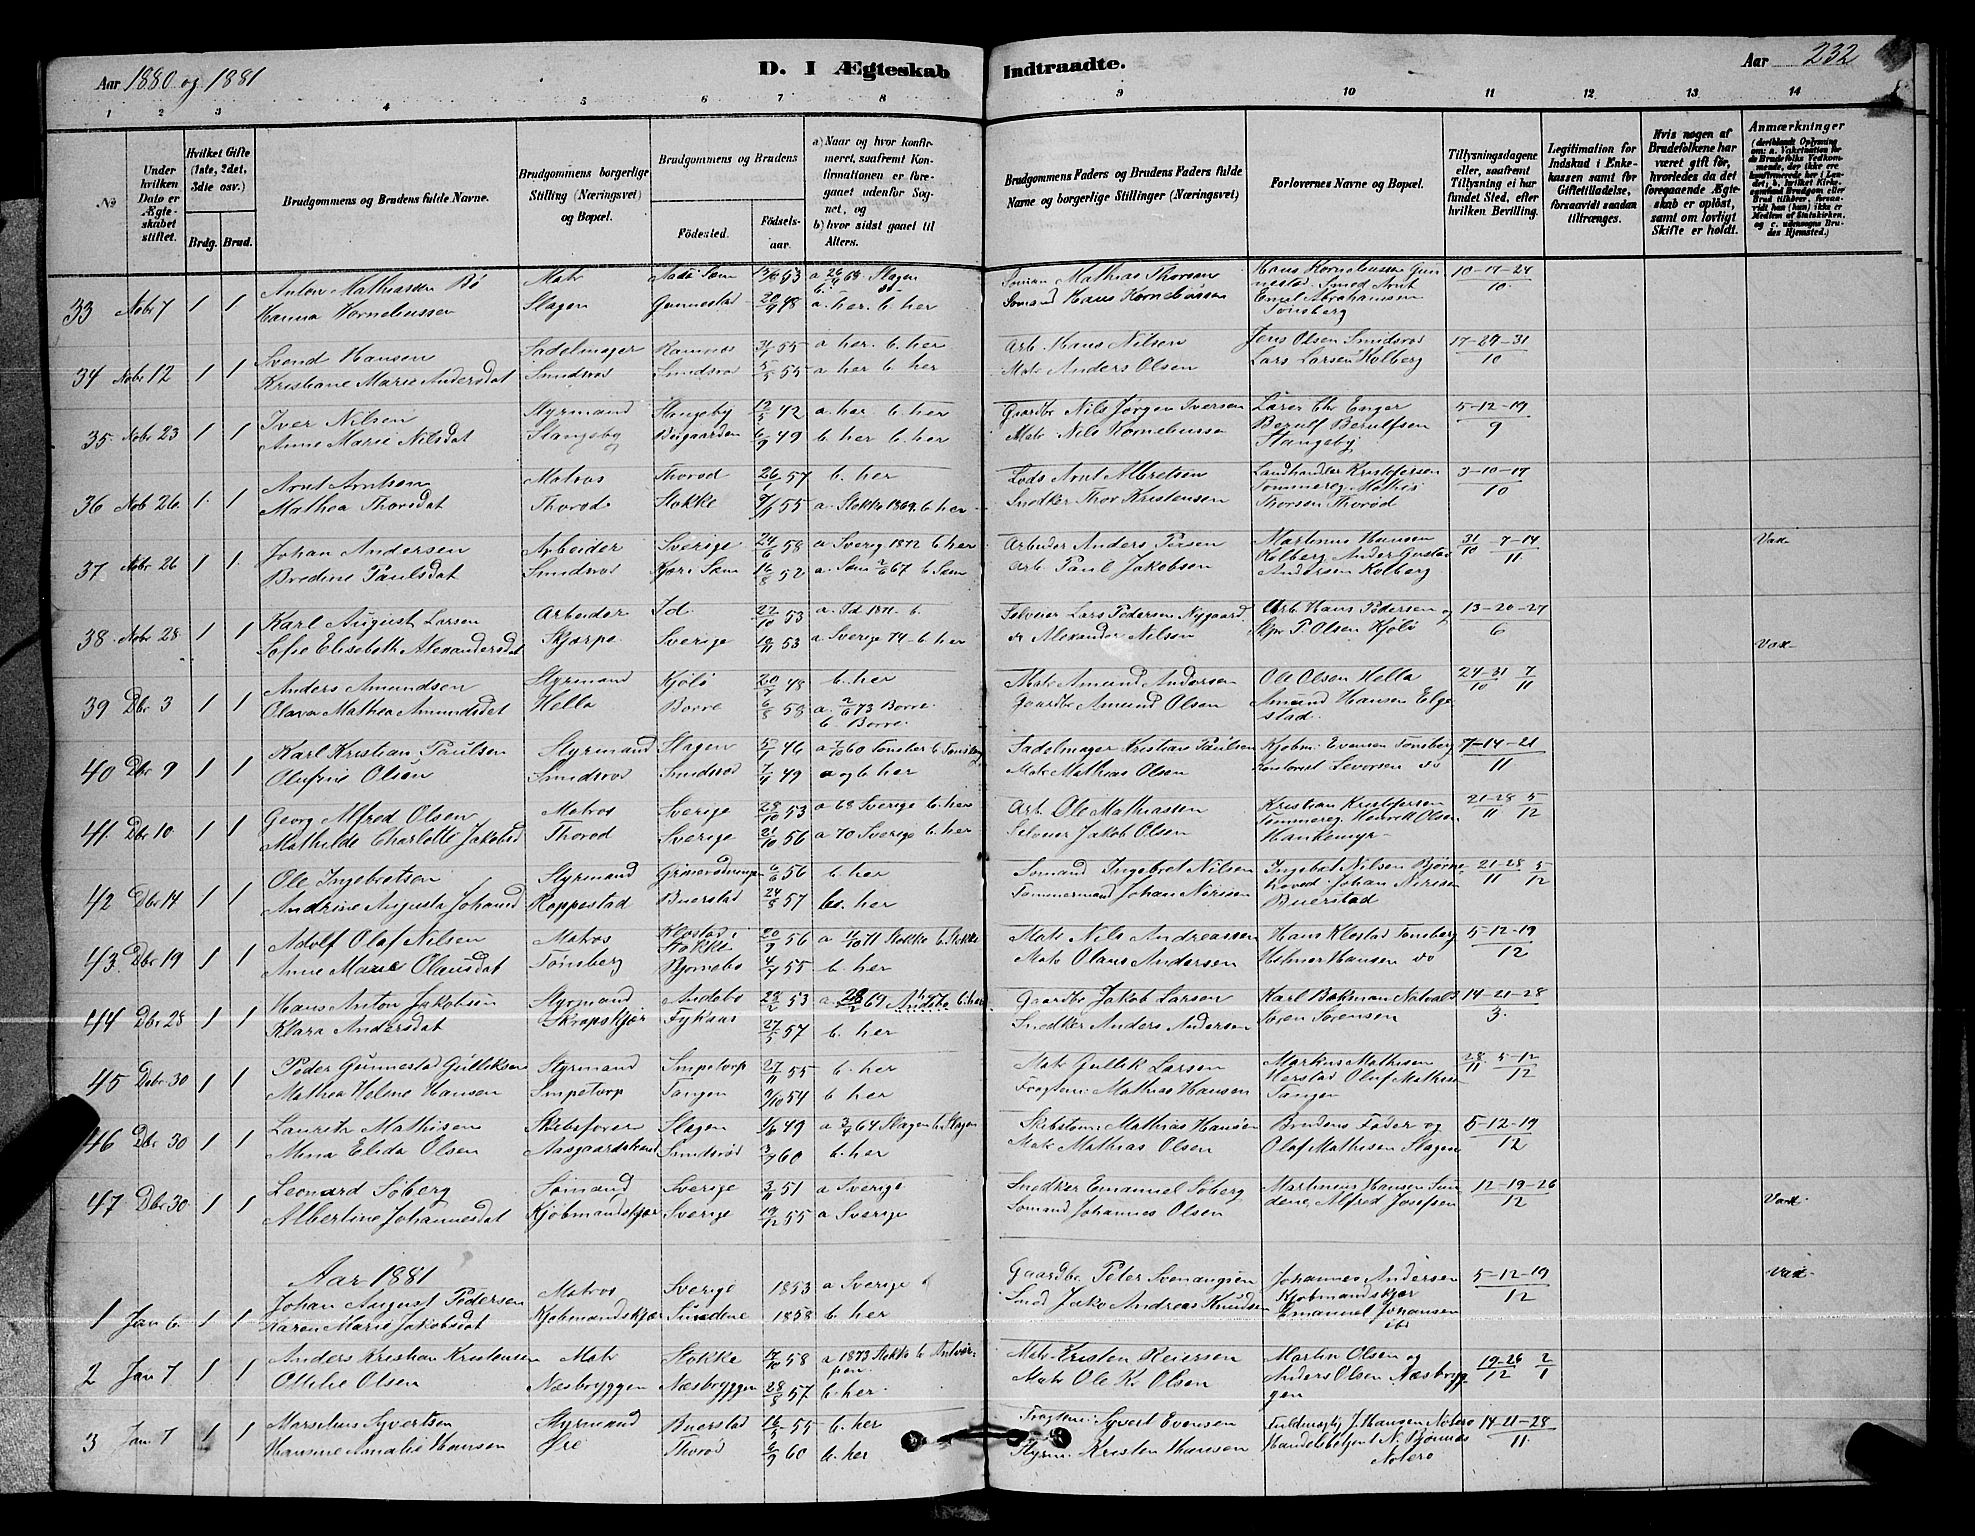 Aar 1880 og 1881
D. I Ægteskab Indtraadte.
Aar 232
1 2 3 4 5 6 7 8 9 10 11 12 13 14
No
Under hvilken Dato er Ægteskabet stiftet.
Hvilket Gifte (1ste, 2det, 3die osv.)
Brdg. Brud.
Brudgommens og Brudens fulde Navne.
Brudgommens borgerlige Stilling (Næringsvei) og Bopæl.
Brudgommens og Brudens
Fødested. Fødselsaar.
a) Naar og hvor konfirmeret, saafremt Konfirmationen er foregaaet udenfor Sognet, og
b) hvor sidst gaaet til Alters.
Brudgommens Faders og Brudens Faders fulde Navne og borgerlige Stillinger (Næringsvei)
Forlovernes Navne og Bopæl.
Tillysningsdagene eller, saafremt Tillysning ei har fundet Sted, efter hvilken Bevilling.
Legitimation for Indskud i Enkekassen samt for Giftetilladelse, forsaavidt saadan tiltrænges.
Hvis nogen af Brudefolkene har været gift før, hvorledes da det foregaaende Ægteskab er opløst, samt om lovligt Skifte er holdt.
Anmærkninger
33 Nobr 7 1 1 Anton Mathiassen Bø Matr 63 a 26/9 Slagen Mathias Thorsen Hans Kornelussen Gun- 10-17-24
Hanna Kornelussen Slagen Gunnestad 20/9 48 a. her. b. her Sømand Hans Kornelussen nestad. Smed Arnt 10
Emil Abrahamsen
Tønsberg
34 Nobr 12 1 1 Svend Hansen Sadelmager Ramnes 55 a her. b. her Arb. Hans Nilsen Jens Olsen Smidsrød 17-24-31
Kristiane Marie Andersdat Smidsrød Smidsrød 55 a her b. her Matr Anders Olsen Lars Larsen Kolberg 10
35 Nobr 23 1 1 Iver Nilsen Styrmand Stangeby 12/5 42 a. her. b. her Gaardbr Nils Jørgen Iversen Enger 5-12-19
Anne Marie Nilsdat Stangeby Bugaarden 6/9 49 b. her b. her Matr Nils Kornelussen Berulf Berulfsen 9
Stangeby
36 Nob 26 1 1 Arnt Arntsen Matros Thorød 26/1 57 b. her Lods Arnt Albretsen Landhandler Kristofersen 3-10-17
Mathea Thorsdat Thorød Stokke 55 a. Stokke 1869. b. her Snedker Thor Kristensen Tømmereg Mathis 10
Thorsen Thorød
37 Nobr 26 1 1 Johan Andersen Arbeider Sverige 24/6 58 a Sverig 1872 b. her Arbeider Anders Persen Martinus Hansen 31/10 7-14 Vax
Bredine Paulsdat Smidsrød Kjær i Sem 16/8 52 a. Sem 67 b. Sem Arb. Paul Jakobsen Kolberg Ander Gustav 11
Andersen Kolberg
38 Nobr 28 1 1 Karl August Larsen Arbeider Id 22/10 53 a. Id 1871 b. Selveier Lars Pedersen Nygaard Arb. Hans Pedersen og 13-20-27
Sofie Elisabeth Alexandersdat Skjerpe Sverige 53 a Sverige 74 b. her Alexander Nilsen Skpr P. Olsen Kjølø 6 Vax
39 Dbr 3 1 1 Anders Amundsen Styrmand Kjølø 20/7 48 b. her Matr Amund Andersen Ole Olsen Hella 24-31/10 7/11
Olava Mathea Amundsdat Hella Borre 6/8 58 a. 73 Borre Gaardbr Amund Olsen Amund Hansen Elge-
b. Borre. stad.
40 Dbr 9 1 1 Karl Kristian Paulsen Styrmand Slagen 46 60 Tønsber b Tønsberg Sadelmager Kristian Paulsen Kjøbm. Evensen Tønsberg 7-14-21
Olufine Olsen Smidsrød Smidsrød 49 a og b. her Matr Mathias Olsen Levorsen do 11
41 Dbr 10 1 1 Georg Alfred Olsen Matros Sverige 28/10 53 a 68 Sverige b. her Arb. Ole Mathiassen Kristian Kristofersen 21-28/11 5/12
Mathilde Charlotte Jakobsd Thorød Sverige 21/10 56 a 70 Sverige b. her Selveier Jakob Olsen Tømmereg Henrik Olsen
Haukemyr
42 Dbr 14 1 1 Ole Ingebretsen Styrmand 6/6 56 b. her Sømand Ingebret Nilsen Ingebret Nilsen Bjørne- 21-28/11 5/12
Andrine Augusta Johansd Roppestad Buerstad 24/8 57 b. her Tømmermand Johan Nirisen Johan Nirisen
Buerstad
43 Dbr 19 1 1 Adolf Olaf Nilsen Matros Klostad i Stokke 20/9 56 a 71 Stokke b. Stokke Matr Nils Andreassen Hans Klestad Tønsberg 5-12-19
Anne Marie Olausdat Tønsberg Bjørnebo 55 b. her Matr Olaus Andersen Hilmer Hansen do 12
44 Dbr 28 1 1 Hans Anton Jakobsen Styrmand Andebo 28/2 53 a. 69 Andebo b. her Gaardbr Jakob Larsen Karl Bækman 14-21-28
Klara Andersdat 27/5 57 b. her Snedker Anders Andersen Søren Sørensen 3.
45 Debr 30 1 1 Peder Gunnestad Gulliksen Styrmand Impetorp 27/11 55 b. her Matr Gullik Larsen Markus Mathisen 28/11 5-12
Mathea Helene Hansen Impetorp Tangen 54 b. her Fragtem: Mathias Hansen Herstad Oluf Mathisen 12
Tangen
46 Dbr 30 1 1 Lauritz Mathisen Skibsfører Slagen 1/6 49 a 64 Slagen b. Slagen Skibstøm: Mathias Hansen Brudens Fader og 5-12-19
Mina Elida Olsen Aasgaardstrand Smidsrød 60 b. her Matr Mathias Olsen Olaf Mathisen Slagen 12
47 Dbr 30 1 1 Leonard Söberg Sømand Sverige 51 a Sverige Snedker Emanuel Söberg Martinus Hansen Sun- 12-19-26
Albertine Johannesdat Kjøbmandskjær Sverige 19/12 55 a Sverige Sømand Johannes Olsen dene, Alfred Josefsen 12 Vax
Aar 1881
1 Jan 6. 1 1 Johan August Pedersen Matros Sverige 1853 a Sverige b Gaardbr Peter Svenningsen Johannes Andersen 5-12-19 Vax
Karen Marie Jakobsdat Kjøbmandskjær Sundene 1858 b. her Smed Jakob Andreas Knudsen Kjøbmandskjær 12
Emanuel Johansen
ibd
2 Jan 7 1 1 Anders Kristian Kristensen Matr Stokke 17/10 58 a 1873 Stokke b Antver- Matr Kristen Reiersen Martin Olsen og 19-26/12 2/1
Ottilie Olsen Næsbryggen Næsbryggen 28/8 57 pen. b. her Matr Ole Kr Olsen Anders Olsen Næsbryg-
gen
3 Jan 7 1 1 Marselius Syvertsen Styrmand Buerstad 16/5 55 b. her Fragtem: Syvert Evensen Fuldmægtig J. Hansen Nøtterø 14-21-28
Hansine Amalie Hansen Øre Thorød 2/9 60 b. her Styrm: Kristen Hansen Handelsbetjent N. Bjønnes 11
Nøtterø